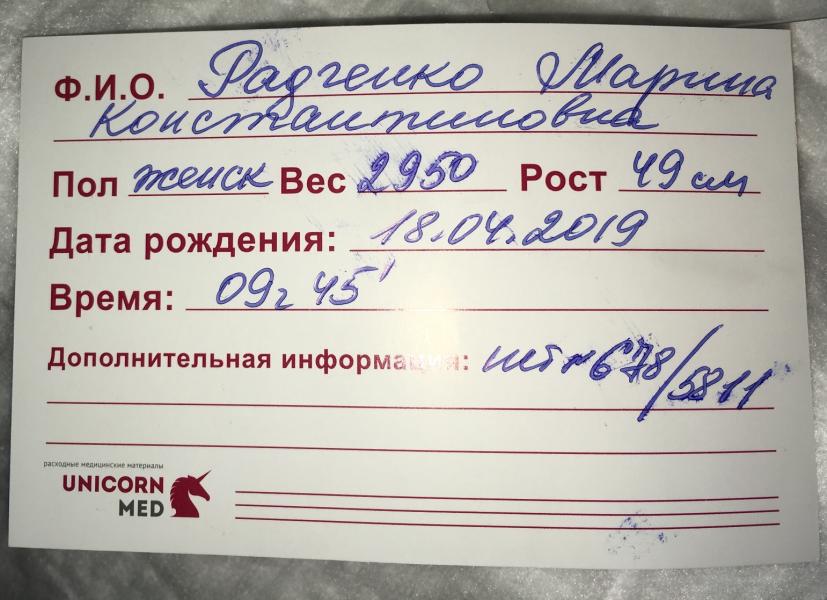 Ф.И.О. Радченко Марина
Константиновна
Пол женск Вес 2950 Рост 49 см
Дата рождения: 18.04.2019
Время: 09ч 45'
Дополнительная информация: 678/5811
расходные медицинские материалы
UNICORN
MED